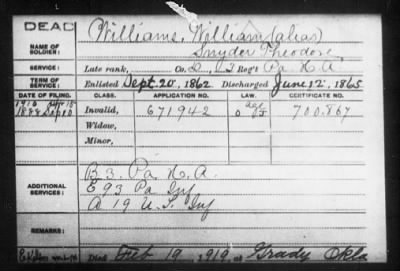 DEAD
Williams, William (alias)
NAME OF SOLDIER:
Snyder Theodore,
SERVICE:
Late rank, Co. L, 3 Reg't Pa H. A.
TERM OF SERVICE:
Enlisted Sept. 20, 1862 Discharged June 12, 1865
DATE OF FILING. CLASS. APPLICATION NO. LAW. CERTIFICATE NO.
1888 Sep 10 Invalid, 671942 700.867
Widow,
Minor,
ADDITIONAL SERVICES:
B 3. Pa H. A.
E 93 Pa Inf
A 19 U. S. Inf
REMARKS:
Died Feb 19, 1919 at Grady Okla